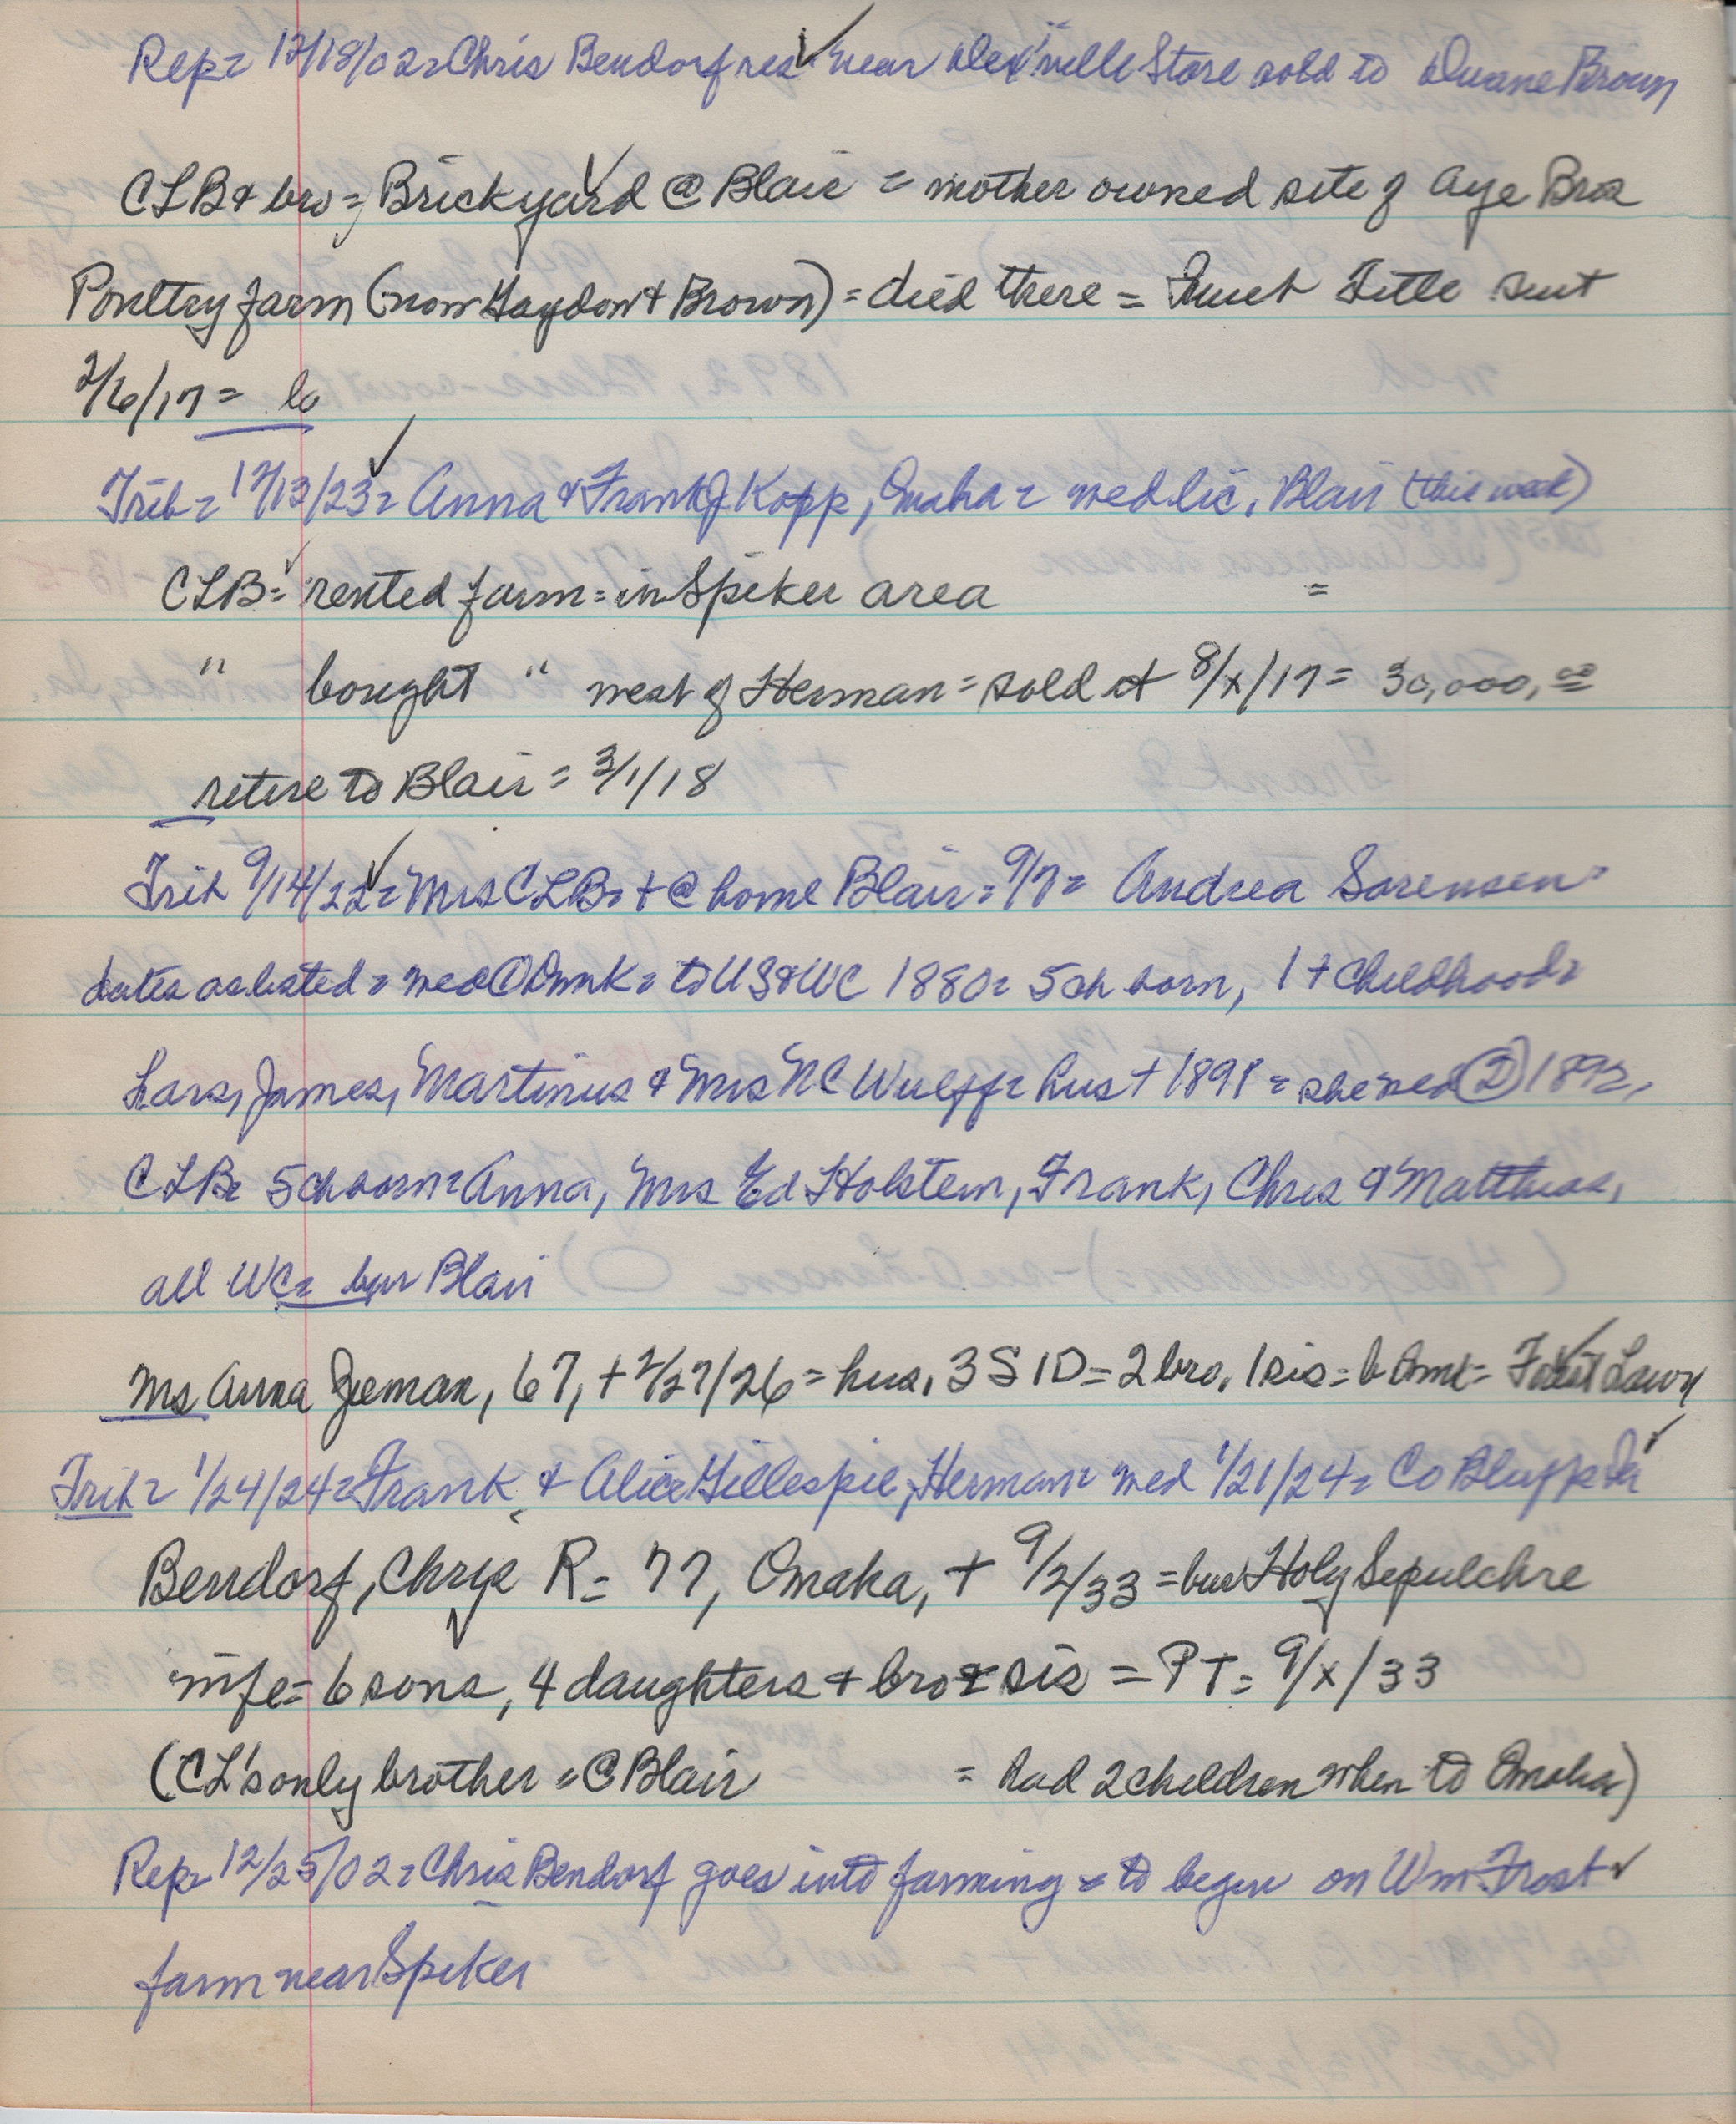 Rep = 12/18/02 = Chris Bendorf res near Dex'ville Store sold to Duane Brown
CLB & bro = Brickyard @ Blair = mother owned site of Aye Bros
Poultry farm (now Haydon & Brown) = died there = Title suit
2/6/17 =
Trib = 12/13/23 = Anna & Frank J Kopp, Omaha = wed lic, Blair (this week)
CLB = rented farm = in Spiker area =
" bought " west of Herman = sold it 8/x/17 = 30,000,00
retire to Blair = 3/1/18
Trib 9/14/22 = Mrs CLB = + @ home Blair = 9/7 = Andrea Sorensen =
dates as listed = wed ① Dmk = to US & WC 1880 = 5 ch born, 1 + childhood =
Lars, James, Martinus & Mrs NC Wulff = hus + 1891 = she wed ② 1892,
CLB = 5 ch born = Anna, Mrs Ed Holstein, Frank, Chris & Matthias,
all WC = bur Blair
Ms Anna Zeman, 67, + 2/27/26 = hus, 3 S 1 D = 2 bro, 1 sis = b Dmk = Forest Lawn
Trib = 1/24/24 = Frank & Alice Gillespie, Herman = wed 1/21/24 = Co Bluffs Ia
Bendorf, Chris R = 77, Omaha, + 9/2/33 = bur Holy Sepulchre
wife = 6 sons, 4 daughters + bro & sis = PT = 9/x/33
(CL's only brother = @ Blair = had 2 children when to Omaha)
Rep = 12/25/02 = Chris Bendorf goes into farming = to begin on Wm Frost
farm near Spiker